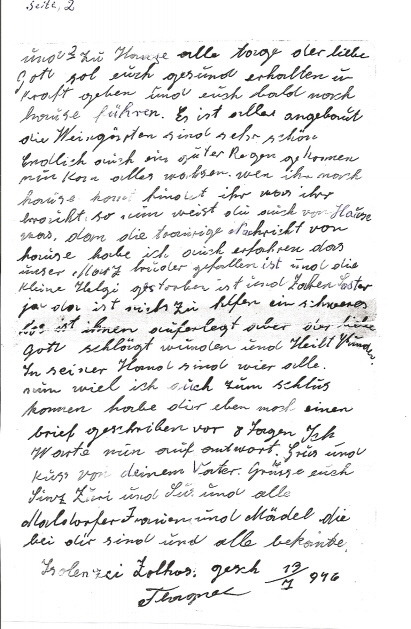 Seite, 2
und zu Hause alle tage der liebe
Gott sol euch gesund erhalten u
kraft geben und euch bald nach
hause führen. Es ist alles angebaut
die Weingärten sind sehr schön
Endlich auch ein guter Regen gekomen
nun kan alles waksen. wen ihr nach
hause komt findet ihr was ihr
braucht. so nun weist du auch von Hause
was, dan die traurige Nachricht von
hause habe ich auch erfahren das
unser bruder gefallen ist und die
kleine Helgi gestorben ist und
ja da ist nichts zu helfen ein schweres
ist ihnen auferlegt aber der liebe
Gott schlägt wunden und Heilt Wunden.
In seiner Hand sind wier alle.
nun wiel ich auch zum schlus
komen habe dir eben noch einen
brief geschriben vor 8 Tagen Ich
Warte nun auf antwort. Grüs und
kuss von deinem Vater. Grüse euch
und und alle
Frauen und Mädel die
bei dir sind und alle bekante.
gesch 19/7 946